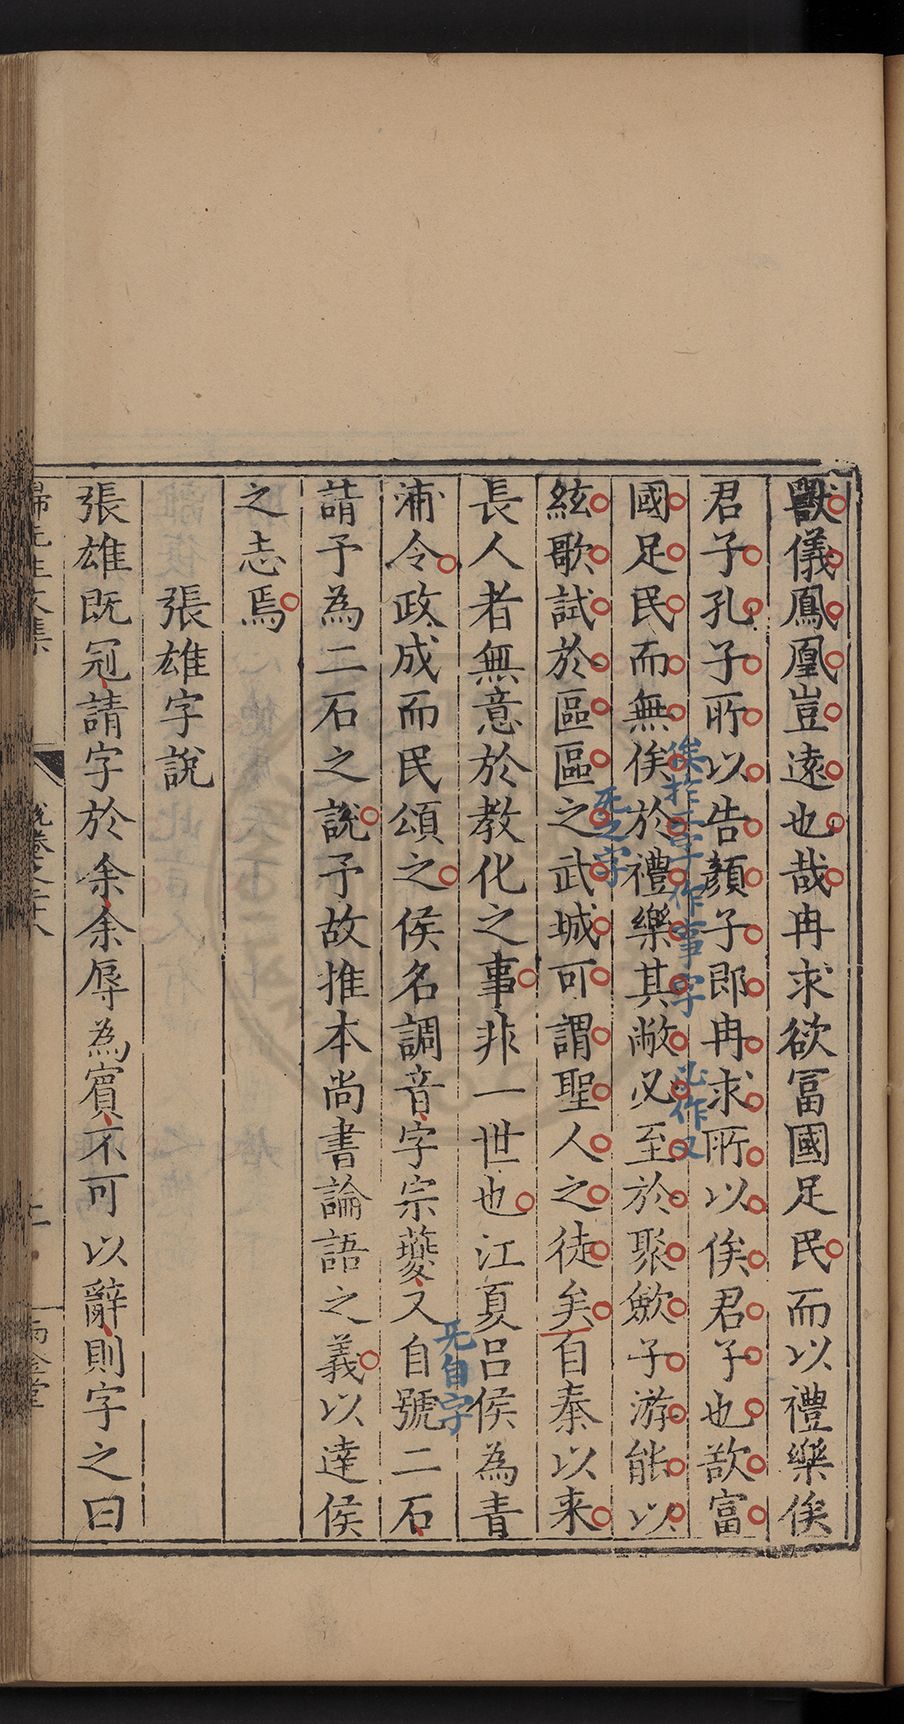 獸儀鳳凰豈遠也哉冉求欲冨國足民而以禮樂俟
君子孔子所以告顏子郎冉求所以俟君子也欲富
國足民而無俟於禮樂其敝必至於聚斂子游能以
絃歌試於區區之武城可謂聖人之徒矣自秦以来
長人者無意於教化之事非一世也江夏吕侯為青
浦令政成而民頌之侯名調音字宗夔又自號二石
請予為二石之說予故推本尚書論語之義以達侯
之志焉
張雄字說
張雄既冠請字於余余辱為賓不可以辭則字之曰
俟於二字作事字
必作又
无之字
无自字